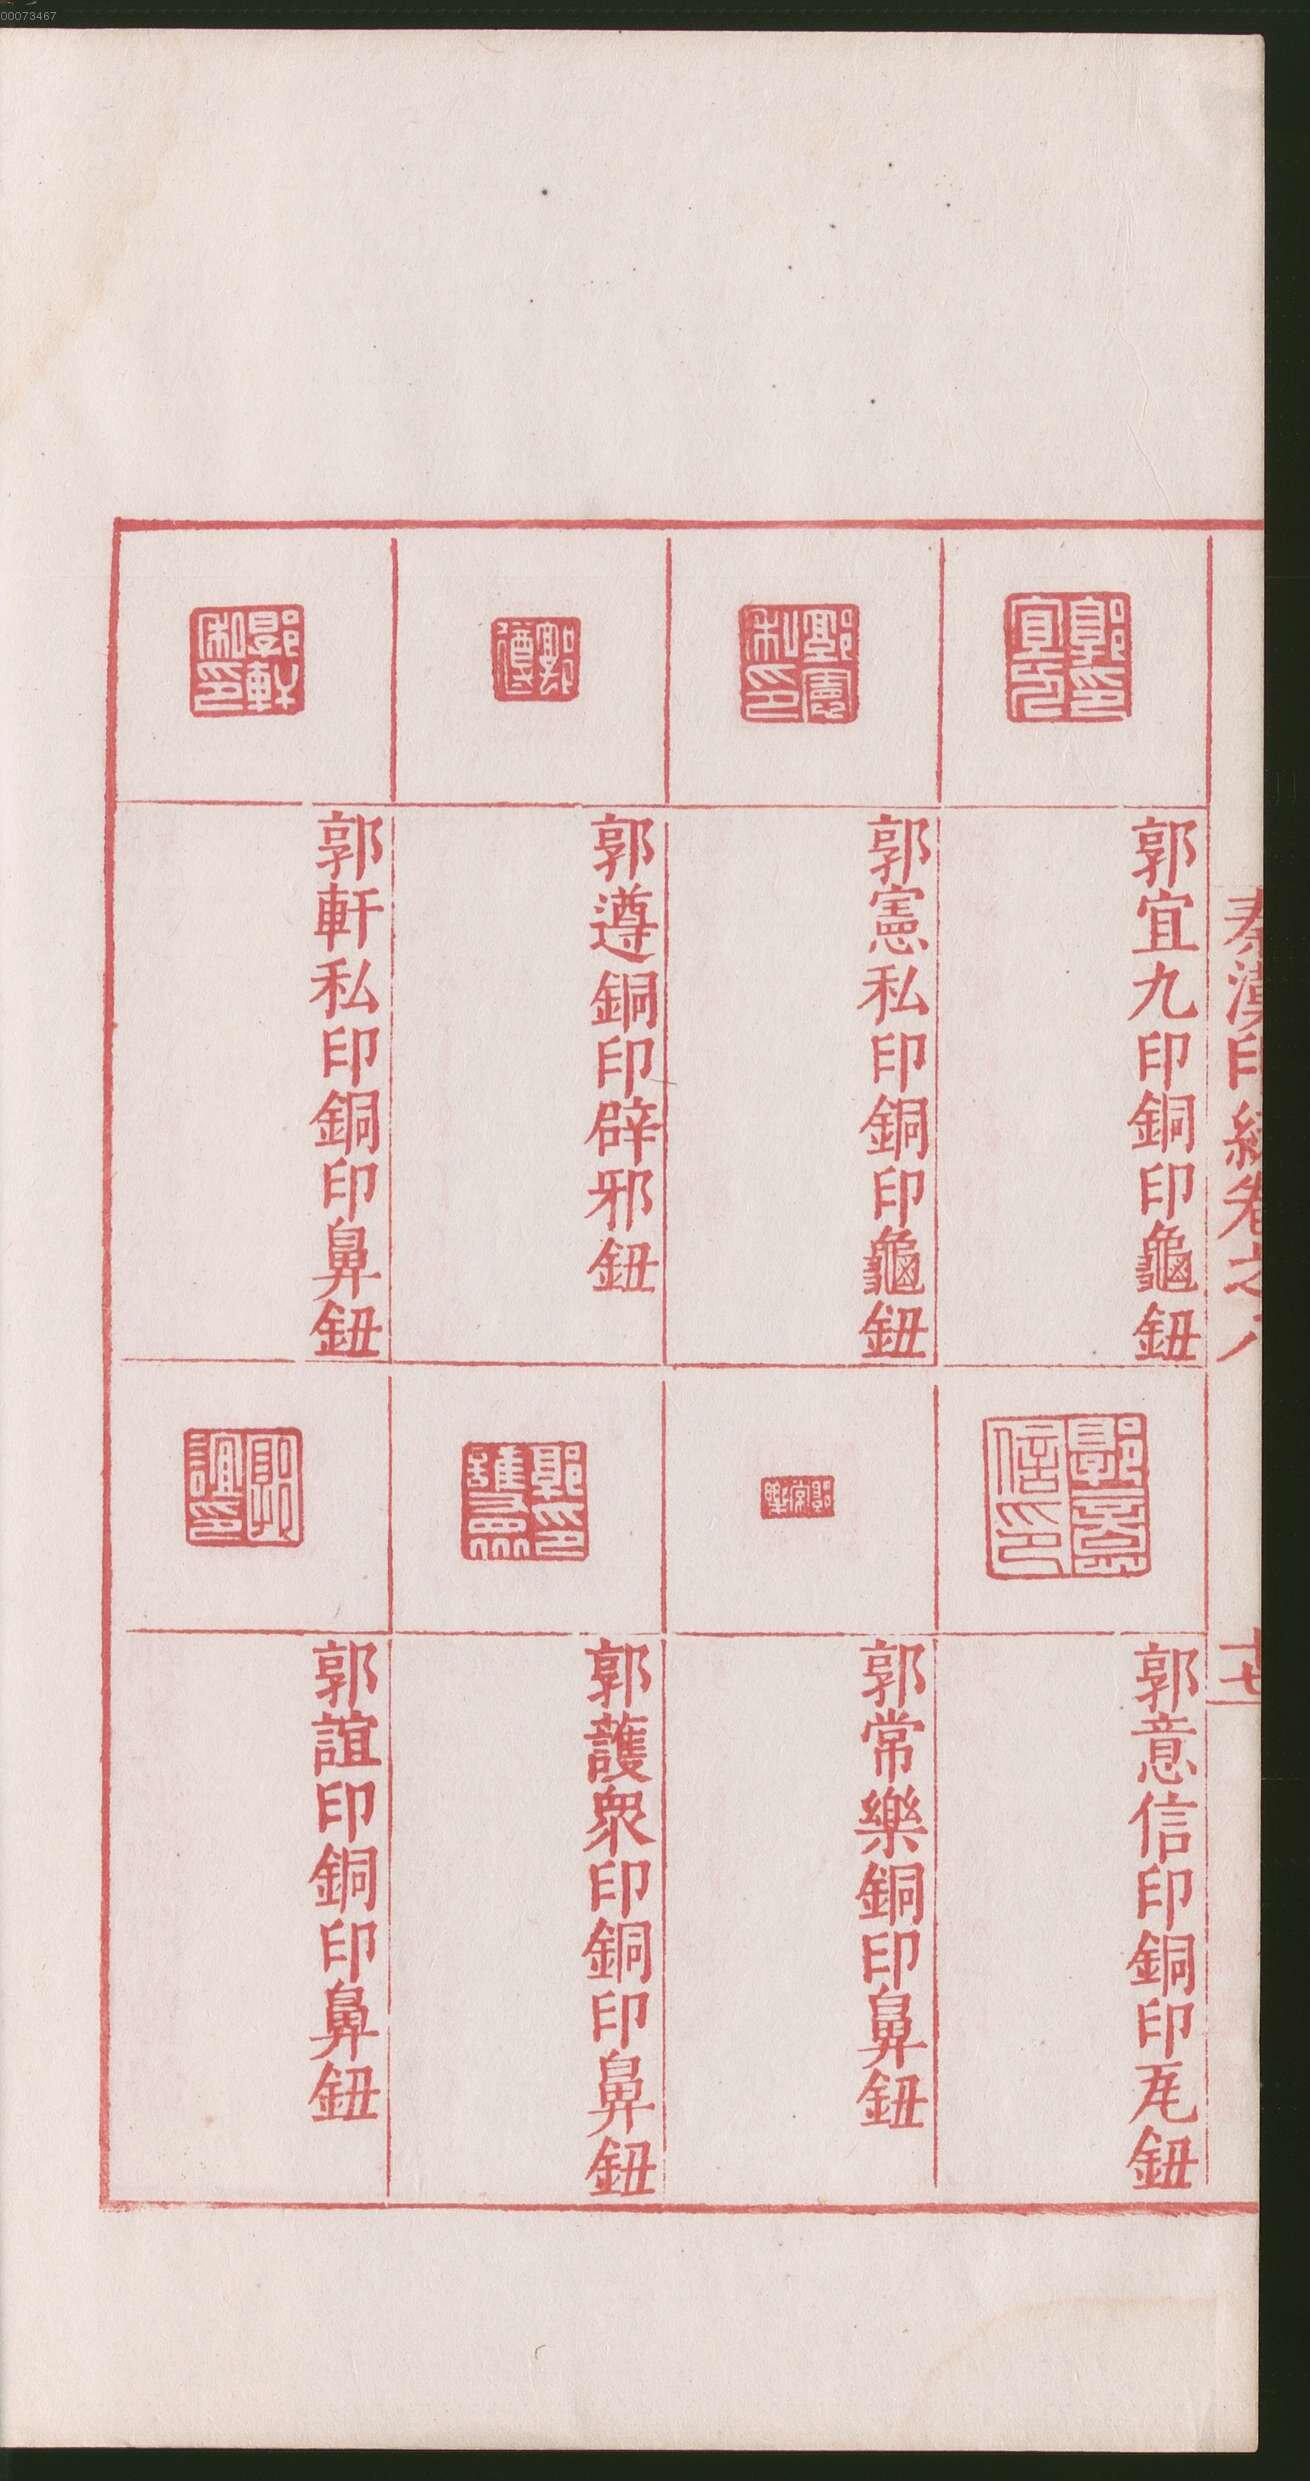 00073467
秦漢印統卷之八
十七
郭宜九印銅印龜鈕
郭憲私印銅印龜鈕
郭遵銅印辟邪鈕
郭軒私印銅印鼻鈕
郭意信印銅印瓦鈕
郭常樂銅印鼻鈕
郭護衆印銅印鼻鈕
郭誼印銅印鼻鈕